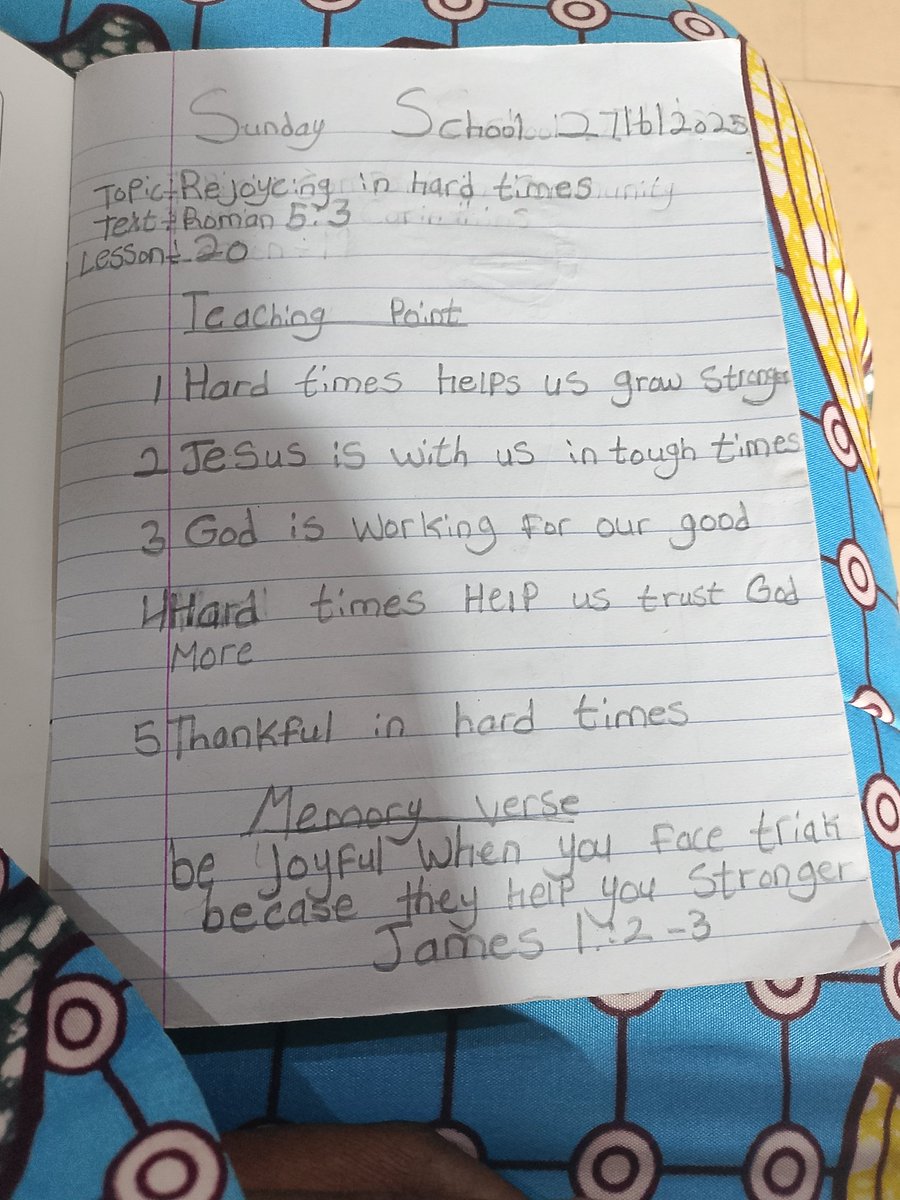 Sunday School 27/6/2025
Topic:- Rejoycing in hard times
Text:- Roman 5:3
Lesson:- 20
Teaching Point
1 Hard times helps us grow Stronger
2 Jesus is with us in tough times
3 God is working for our good
4 Hard times Help us trust God
More
5 Thankful in hard times
Memory verse
be Joyful When you Face trials
becase they help you Stronger
James 1:2-3